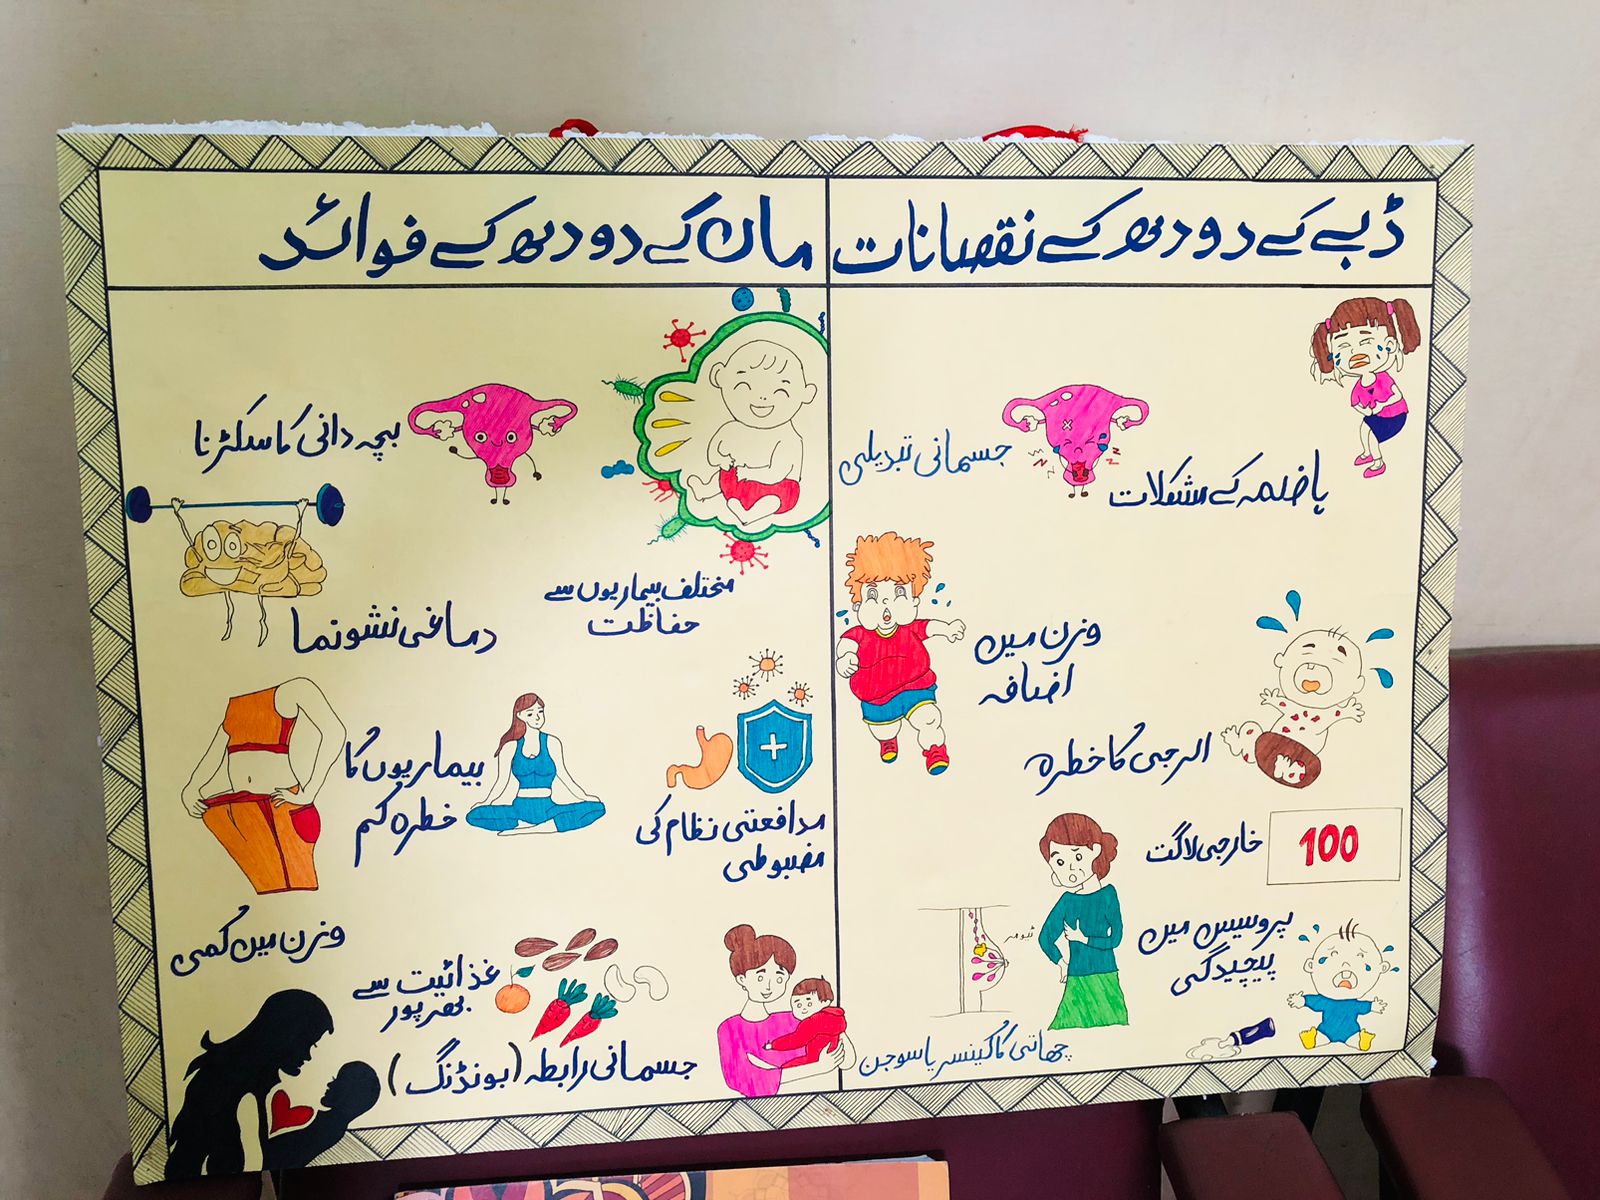 ڈبے کے دودھ کے نقصانات
ہاضمہ کے مشکلات
جسمانی تبدیلی
وزن میں
اضافہ
الرجی کا خطرہ
100
خارجی لاگت
پروسیس میں
پیچیدگی
ٹیومر
چھاتی کا کینسر یا سوجن
ماں کے دودھ کے فوائد
بچہ دانی کا سکڑنا
مختلف بیماریوں سے
حفاظت
دماغی نشونما
بیماریوں کا
خطرہ کم
مدافعتی نظام کی
مضبوطی
وزن میں کمی
غذائیت سے
بھرپور
جسمانی رابطہ (بونڈنگ)